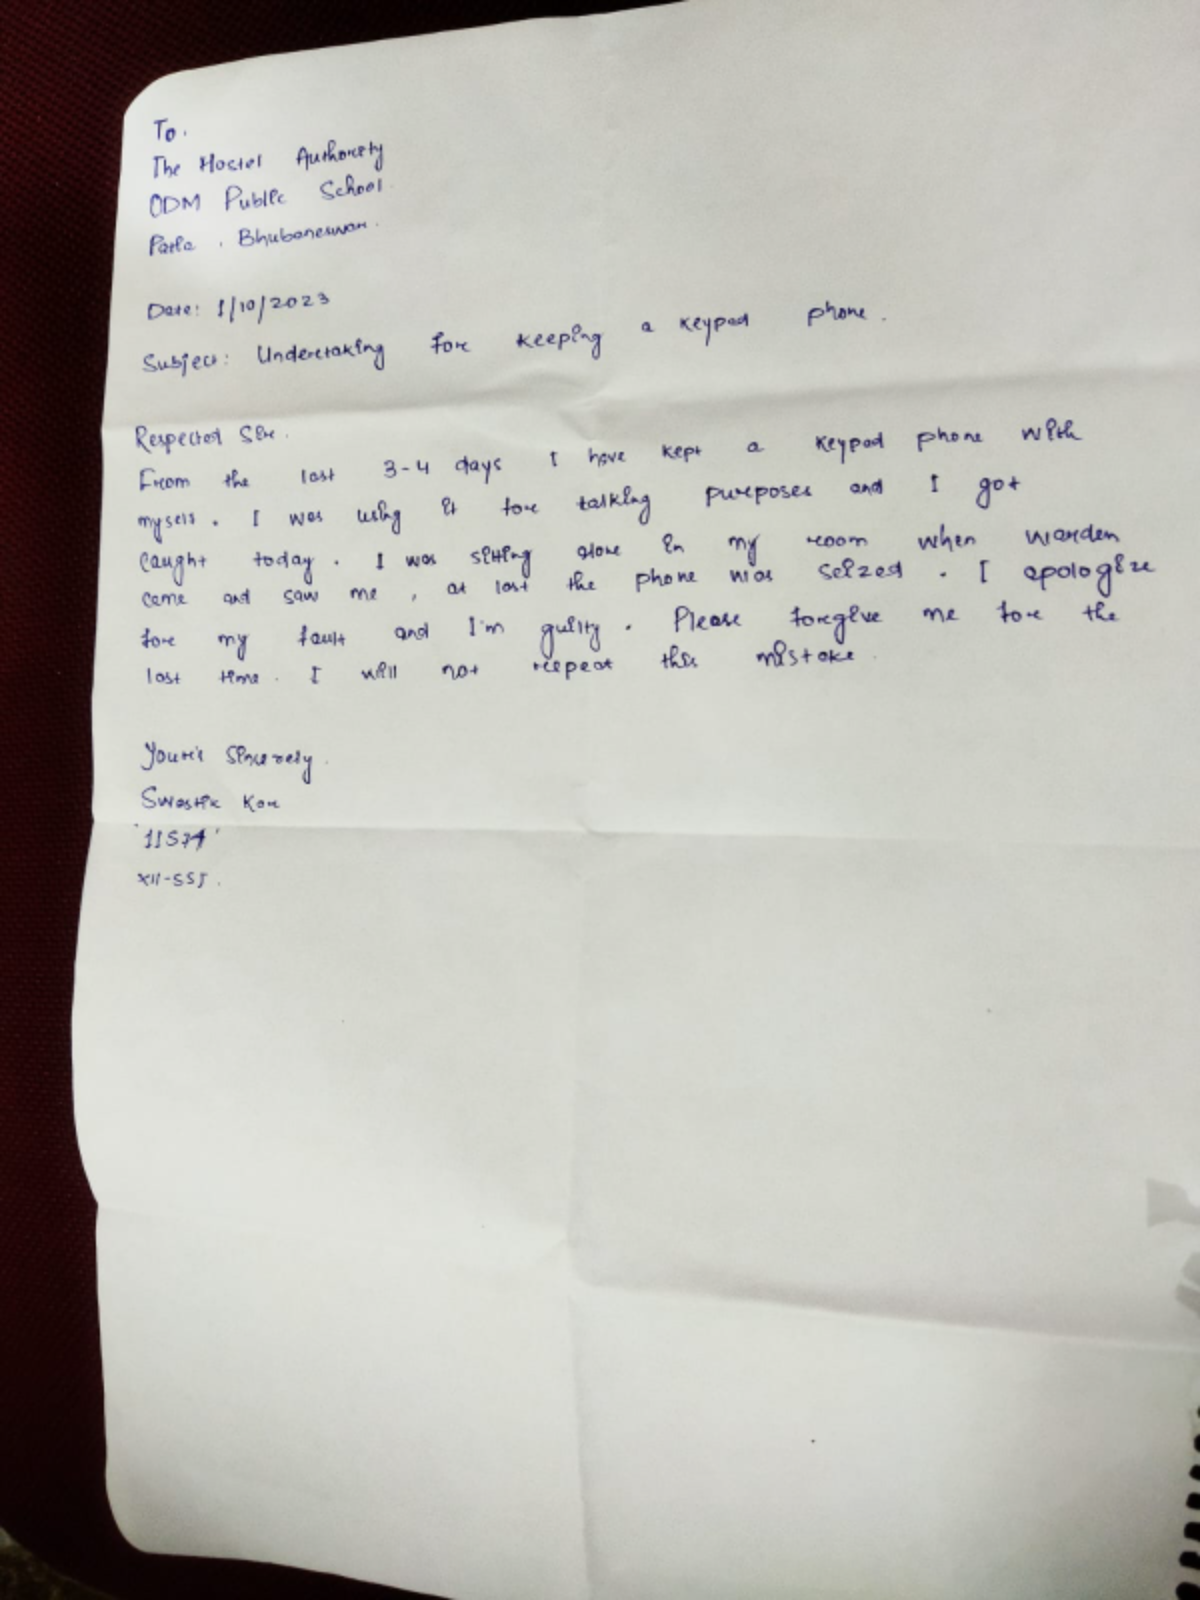 To.
The Hostel Authority
ODM Public School
Patia, Bhubaneswar.
Date: 1/10/2023
Subject: Undertaking for keeping a keypad phone.
Respected Sir.
From the last 3-4 days I have kept a keypad phone with
myself. I was using it for talking purposes and I got
caught today. I was sitting alone in my room when warden
came and saw me, at last the phone was seized. I apologize
for my fault and I'm guilty. Please forgive me for the
last time. I will not repeat this mistake.
Your's Sincerely.
Swastik Kar
'11574'
XII-SSJ.